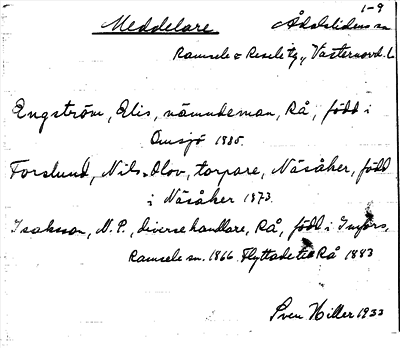 1-9
Meddelare Ådalslidens sn
Ramsele o Resele tg, Västernorrl. l.
Engström, Elis, nämndeman, Rå, född i
Omsjö 1885.
Forslund, Nils-Olov, torpare, Näsåker, född
i Näsåker 1873.
Isaksson, N.P., diversehandlare, Rå, född i Imfors,
Ramsele sn. 1866. Flyttade till Rå 1883
Sven Hiller 1933